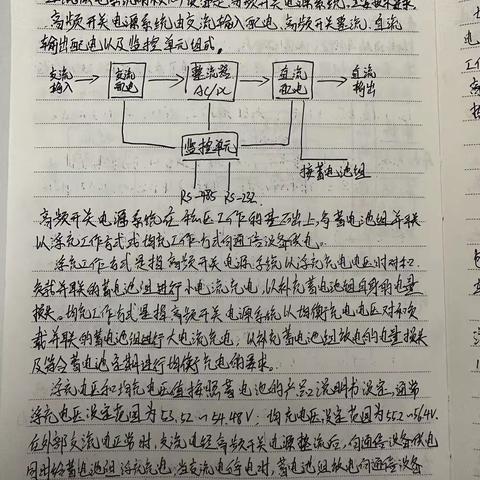 高频开关电源系统由交流输入配电、高频开关整流、直流
输出配电以及监控单元组成。
交流
输入
交流
配电
整流器
AC/DC
直流
配电
直流
输出
监控单元
接蓄电池组
RS-485 RS-232
高频开关电源系统在稳压工作的基础上,与蓄电池组并联
以浮充工作方式或均充工作方式向通信设备供电。
浮充工作方式是指高频开关电源系统以浮充充电电压对和
负载并联的蓄电池组进行小电流充电,以补充蓄电池组自身的电量
损失。均充工作方式是指高频开关电源系统以均衡充电电压对和负
载并联的蓄电池组进行大电流充电,以补充蓄电池组放电的电量损失
及符合蓄电池定期进行均衡充电的要求。
浮充电压和均充电压值按照蓄电池的产品说明书设定,通常
浮充电压设定范围为53.52~54.48V,均充电压设定范围为55.2~56.4V.
在外部交流电正常时,交流电经高频开关电源整流后,向通信设备供电
同时给蓄电池组浮充充电;当交流电停电时,蓄电池组放电向通信设备